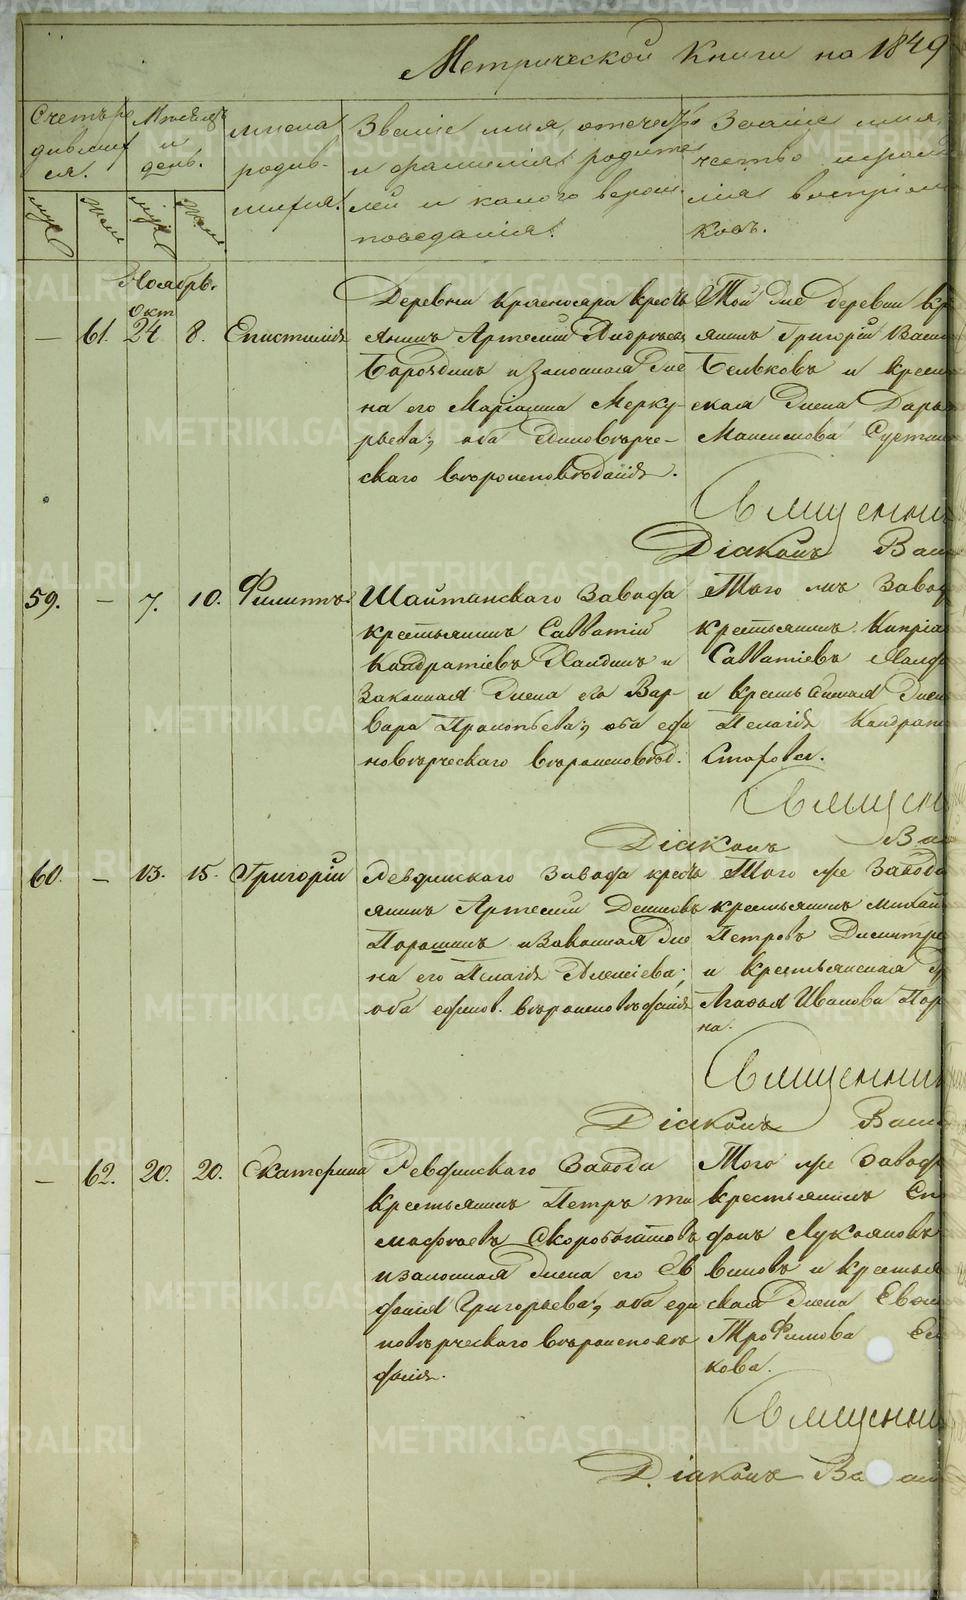 Метрической Книги на 1849
Счетъ ро
дивших
ся.
муж
жен
Мѣсяцъ
и
день.
имена
родив-
шихся.
Званіе имя, отечество
и фамилія родите
лей и какого вероис
поведанія.
Званіе имя,
чество и фами
лія воспріем
ковъ.
Ноябрь.
Окт
— 61. 24 8. Епистимія
Деревни Краснояра кресть
янинъ Артемій Андреевъ
Бороздинъ и Законная же
на его Маріамна Мерку-
рьева; оба Единовѣрче-
скаго вѣроисповѣданія.
Той же деревни кр
янинъ Григорій Васи
Бельковъ и крестья
ская Жена Дарья
Максимова
Священни
Діаконъ Васи
59. — 7. 10. Филиппъ
Шайтанскаго Завода
крестьянинъ Савватій
Кондратіевъ и
Законная Жена его Вар-
вара Прокопьева; оба еди
новѣрческаго вѣроисповѣд.
Того же Завод
крестьянинъ Кипріа
Савватіевъ
и крестьянская Жен
Пелагія Кондрат
Священ
Діаконъ Ва
60. — 13. 15. Григорій
Ревдинскаго Завода кресть
янинъ Артемій Денисовъ
Порошинъ и Законная же
на его Пелагія Алексіева;
оба единов. вѣроисповѣданія
Того же Завода
крестьянинъ Михаи
Петровъ Дмитр
и Крестьянская
Агафья Иванова Пор
на.
Священни
Діаконъ Васи
— 62. 20. 20. Екатерина
Ревдинскаго Завода
Крестьянинъ Петръ Ти
мофеевъ Скоробогатовъ
и законная Жена его Ев
фанія Григорьева; оба еди
новѣрческаго вѣроисповѣ
данія.
Того же Завод
Крестьянинъ
фанъ Лукояновъ
виновъ и крестьян
ская Жена
Трофимова
кова.
Священни
Діаконъ Ва
METRIKI.GASO-URAL.RU